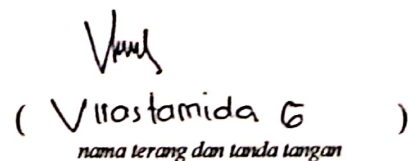 ( Virostamida G )
nama terang dan tanda tangan